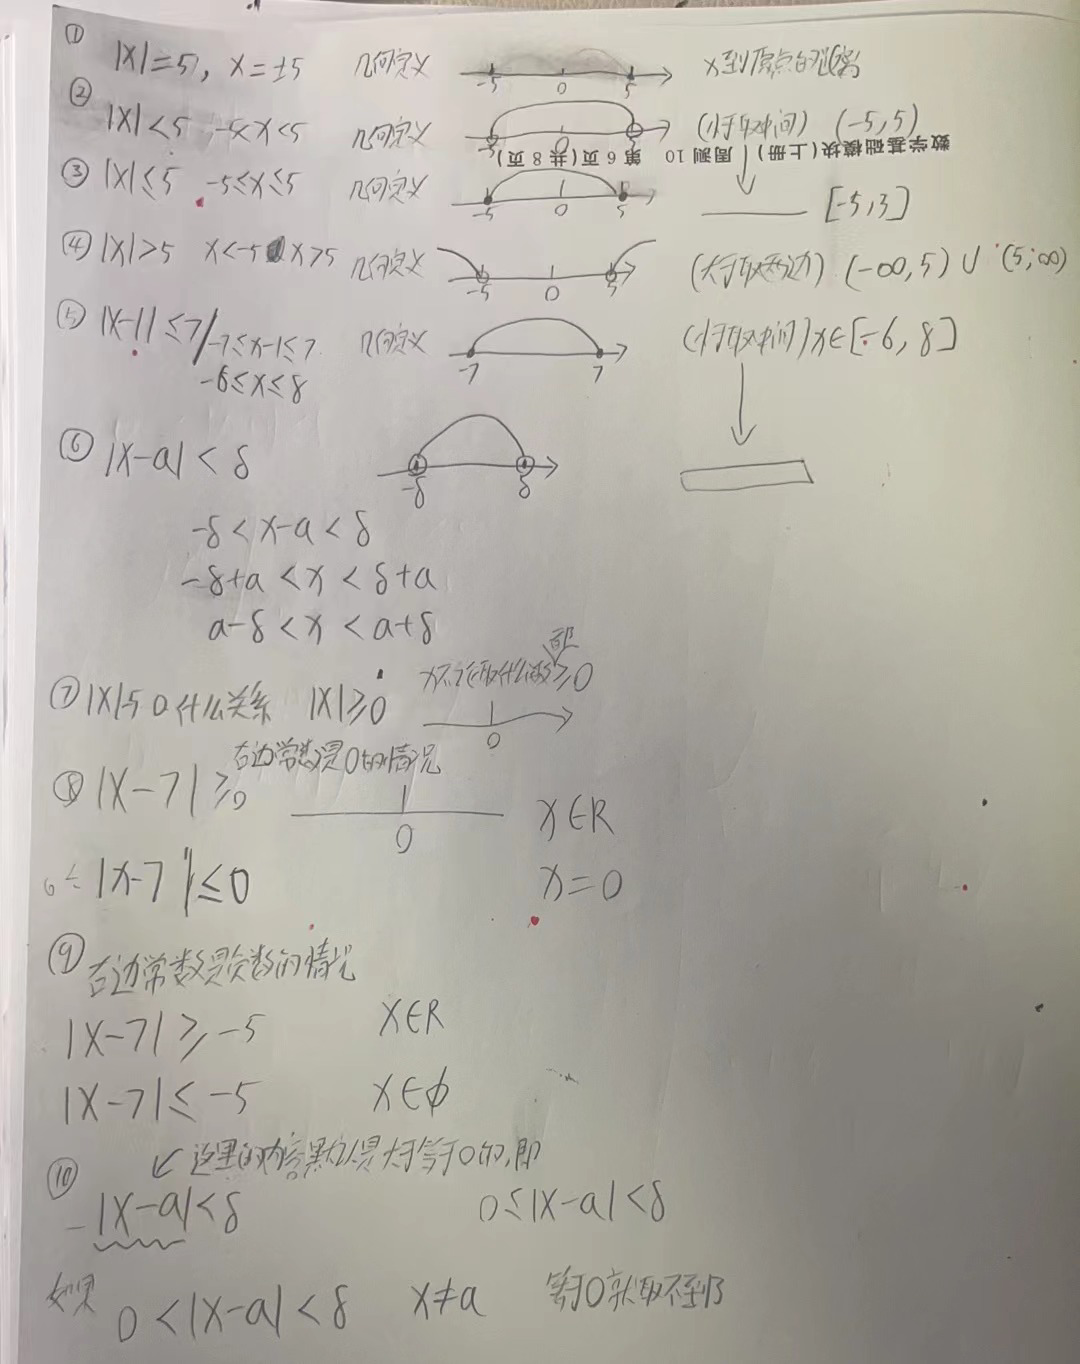 ① |x|=5, x=±5 几何定义 -5 0 5 x到原点的距离
② |x|<5 -5<x<5 几何定义 -5 0 5 (小于取中间) (-5,5)
数学基础模块(上册) 周测10 第6页(共8页)
③ |x|≤5 -5≤x≤5 几何定义 -5 0 5 [-5,3]
④ |x|>5 x<-5 x>5 几何定义 -5 0 5 (大于取两边) (-∞,5)∪(5,∞)
⑤ |x-1|≤7 -7≤x-1≤7 几何定义 -7 7 (小于取中间) x∈[-6,8]
-6≤x≤8
⑥ |x-a|<δ -δ δ
-δ<x-a<δ
-δ+a<x<δ+a
a-δ<x<a+δ
⑦ |x|与0什么关系 |x|≥0 x不论取什么数都≥0
0
右边常数是0的情况
⑧ |x-7|≥0 0 x∈R
|x-7|≤0 x=0
⑨ 右边常数是负数的情况
|x-7|≥-5 x∈R
|x-7|≤-5 x∈ϕ
↙这里的内容默认是大于等于0的,即
⑩ |x-a|<δ 0≤|x-a|<δ
如果 0<|x-a|<δ x≠a 等于0就取不到了